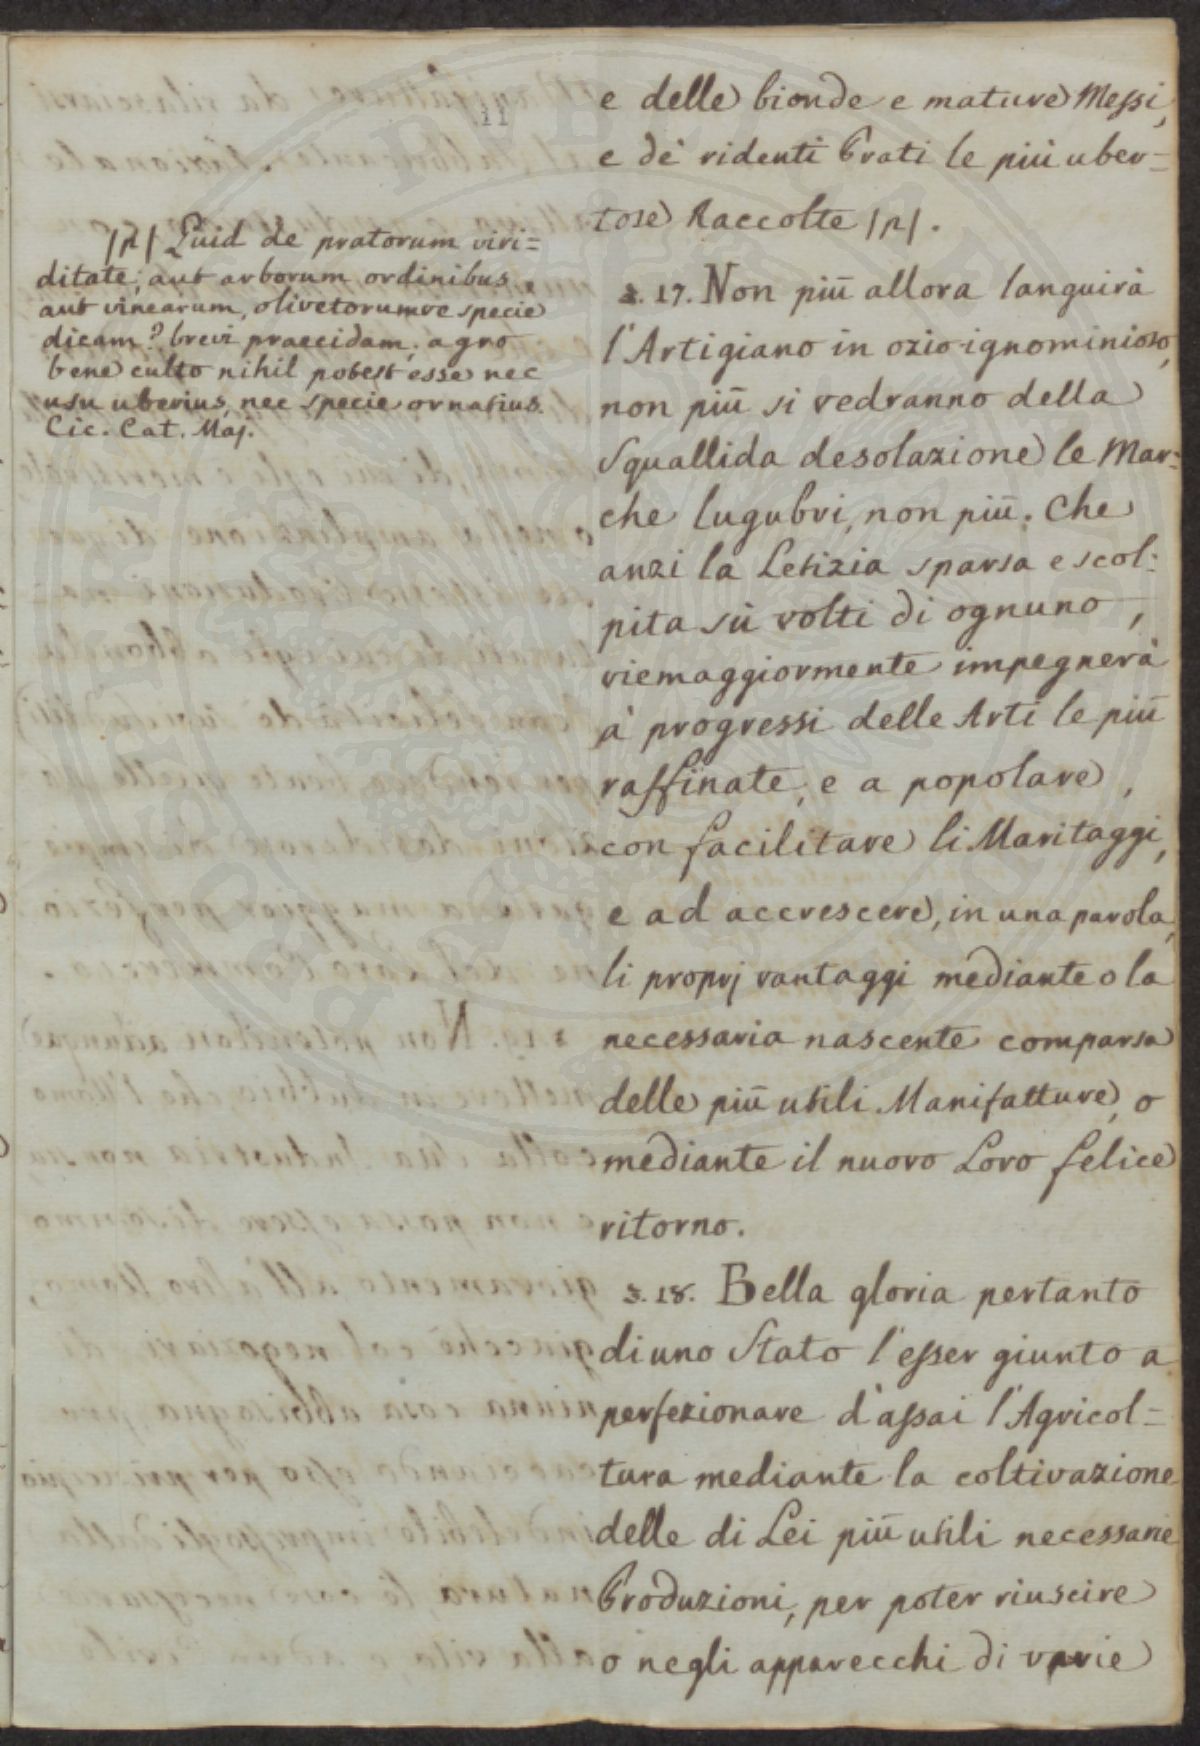 11
e delle bionde e mature Messi,
e de' ridenti Prati le più uber=
tose Raccolte /p/.
§. 17. Non più allora languirà
l'Artigiano in ozio ignominioso,
non più si vedranno della
Squallida desolazione le Mar=
che lugubri, non più. Che
anzi la Letizia sparsa e scol=
pita sù volti di ognuno,
viemaggiormente impegnerà
à progressi delle Arti le più
raffinate, e a popolare,
con facilitare li Maritaggi,
e ad accrescere, in una parola,
li proprj vantaggi mediante o la
necessaria nascente comparsa
delle più utili Manifatture, o
mediante il nuovo Loro felice
ritorno.
§. 18. Bella gloria pertanto
di uno Stato l'esser giunto a
perfezionare d'assai l'Agricol=
tura mediante la coltivazione
delle di Lei più utili necessarie
Produzioni, per poter riuscire
o negli apparecchi di varie
/p/ Quid de pratorum viri=
ditate, aut arborum ordinibus,
aut vinearum, olivetorumve specie
dicam? brevi praecidam, agro
bene culto nihil potest esse nec
usu uberius, nec specie ornatius.
Cic. Cat. Maj.